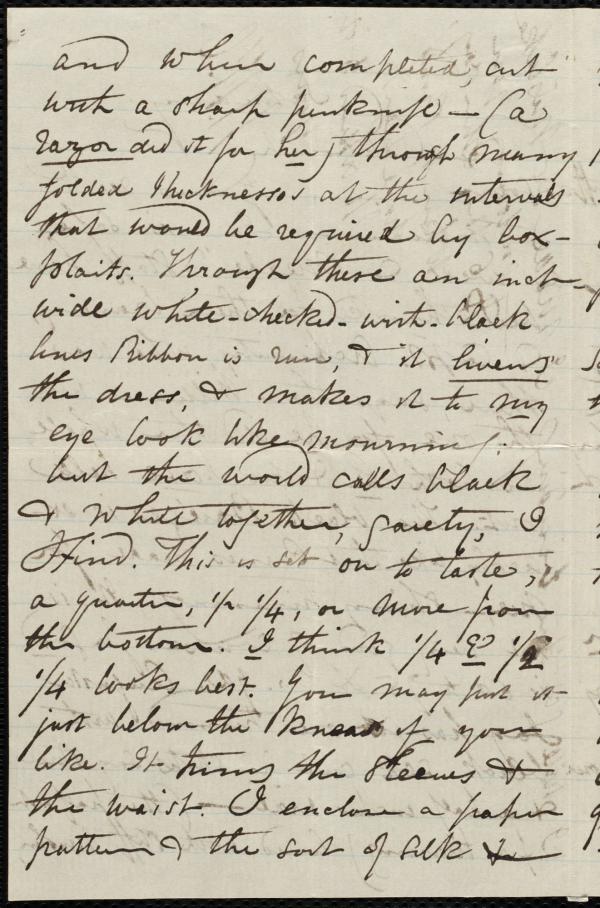 and when completed, cut
with a sharp penknife — (a
razor did it for her) through many
folded thicknesses at the intervals
that would be required by box-
plaits. Through these an inch-
wide white-checked-with-black
lines Ribbon is run, & it livens
the dress, & makes it to my
eye look like mourning.
but the world calls black
& white together, gaiety, I
find. This is set on to taste,
a quarter, ½ ¼, or more from
the bottom. I think ¼ & ½
¼ looks best. You may put it
just below the knees if you
like. It trims the sleeves &
the waist. I enclose a paper
pattern & the sort of silk &